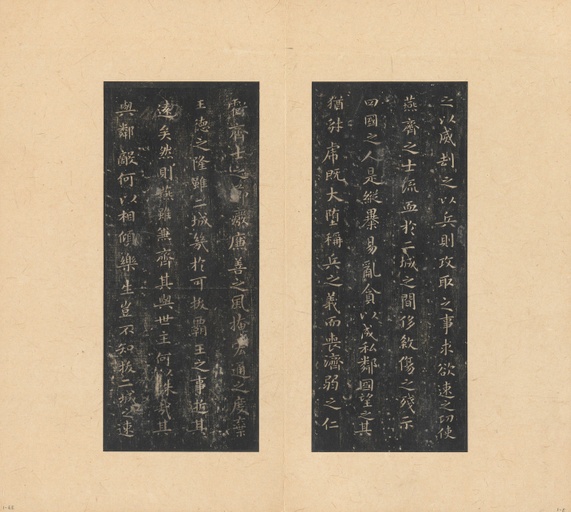 之以威劫之以兵則攻取之事求欲速之功使
燕齊之士流血於二城之間侈敘傷之殘示
四國之人是縱暴易亂貪以成私鄰國望之其
猶犲虎既大墮稱兵之義而喪濟弱之仁
虧齊士之節廢廉善之風掩宏通之度棄
王德之隆雖二城幾於可拔霸王之事逝其
遠矣然則燕雖兼齊其與世主何以殊哉其
與鄰敵何以相傾樂生豈不知拔二城之速